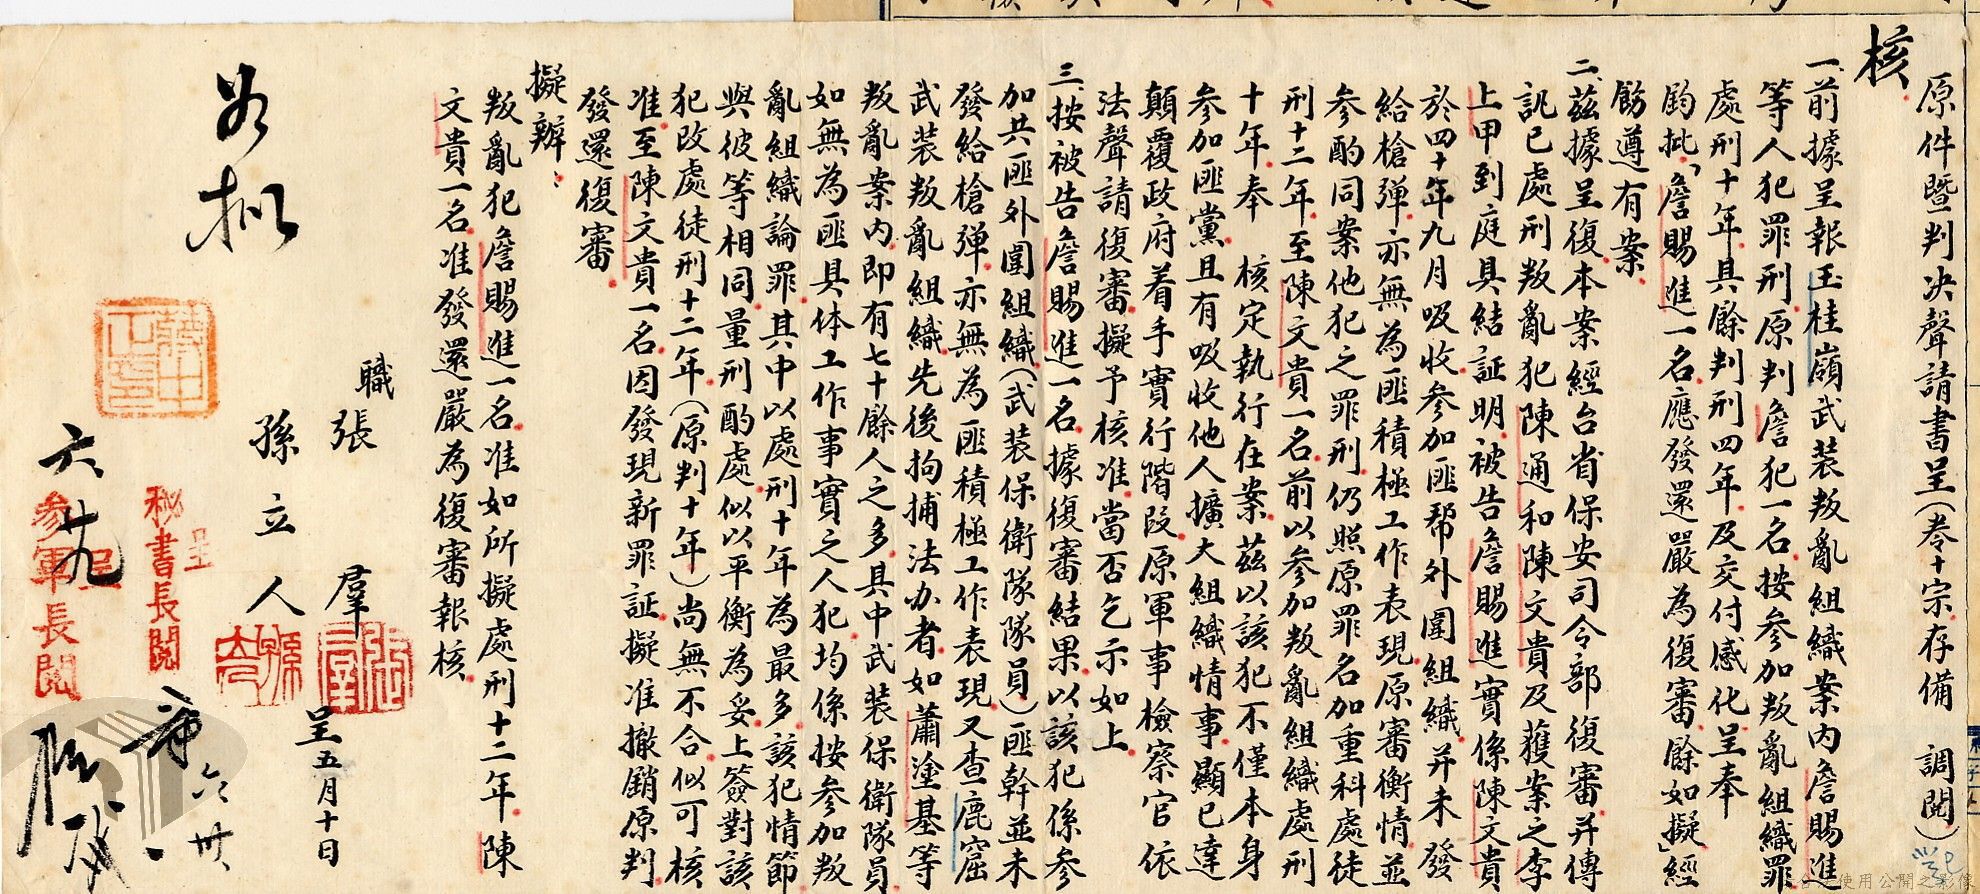 原件暨判決聲請書呈(卷十宗存備　調閱)
核
一、前據呈報玉桂嶺武裝叛亂組織案內詹賜進
等人犯罪刑、原判詹犯一名、按參加叛亂組織罪
處刑十年、其餘判刑四年、及交付感化、呈奉
鈞批、「詹賜進一名、應發還嚴為復審、餘如擬」經
飭遵有案、
二、茲據呈復本案經台省保安司令部復審、并傳
訊已處刑叛亂犯陳通和陳文貴及獲案之李
上甲到庭具結証明、被告詹賜進實係陳文貴
於四十年九月吸收參加匪幫外圍組織、并未發
給槍彈、亦無為匪積極工作表現、原審衡情、並
參酌同案他犯之罪刑、仍照原罪名加重科處徒
刑十二年、至陳文貴一名、前以參加叛亂組織處刑
十年、奉　核定執行在案、茲以該犯不僅本身
參加匪黨、且有吸收他人擴大組織情事、顯已達
顛覆政府着手實行階段、原軍事檢察官依
法聲請復審、擬予核准、當否乞示如上
三、按被告詹賜進一名、據復審結果、以該犯係參
加共匪外圍組織(武裝保衛隊隊員)匪幹並未
發給槍彈、亦無為匪積極工作表現、又查鹿窟
武裝叛亂組織、先後拘捕法办者、如蕭塗基等
叛亂案內、即有七十餘人之多、其中武裝保衛隊員
如無為匪具体工作事實之人犯、均係按參加叛
亂組織論罪、其中以處刑十年為最多、該犯情節
與彼等相同、量刑酌處、似以平衡為妥、上簽對該
犯改處徒刑十二年、(原判十年)尚無不合、似可核
准、至陳文貴一名、因發現新罪証、擬准撤銷原判
發還復審、
擬辦：
叛亂犯詹賜進一名、准如所擬處刑十二年、陳
文貴一名、准發還嚴為復審報核、
職
張　羣
孫立人
呈五月十日
如擬
六廿九
秘書長閱
呈
參軍長閱
呈